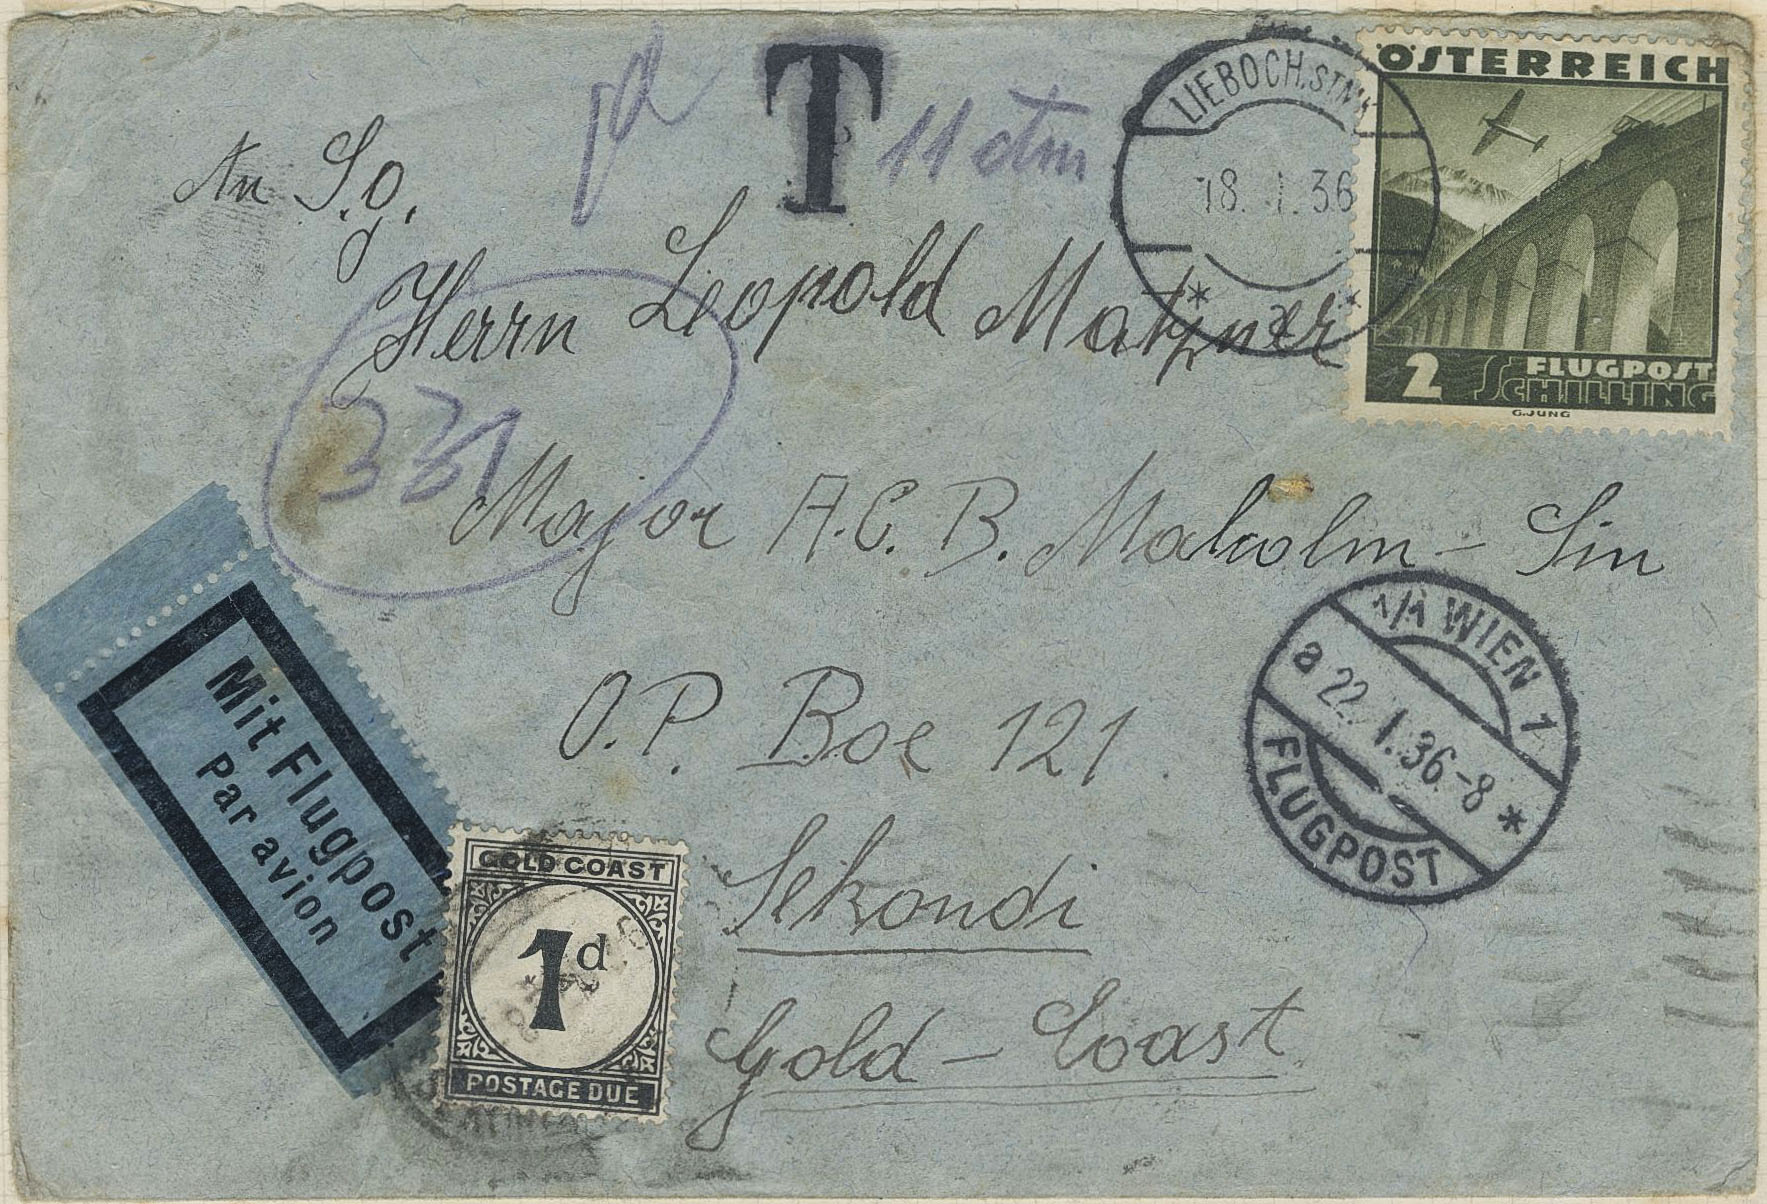 T
11 ctm
LIEBOCH.STMK
18. I. 36
ÖSTERREICH
2 FLUGPOST
SCHILLING
G.JUNG
An S.g.
Herrn Leopold Matzner
331
Major A.C.B. Malcolm - Sin
O.P. Boe 121.
Sekondi
Gold - Coast
1/1 WIEN 1
a 22. I. 36 - 8 *
FLUGPOST
Mit Flugpost
Par avion
GOLD COAST
1d
POSTAGE DUE